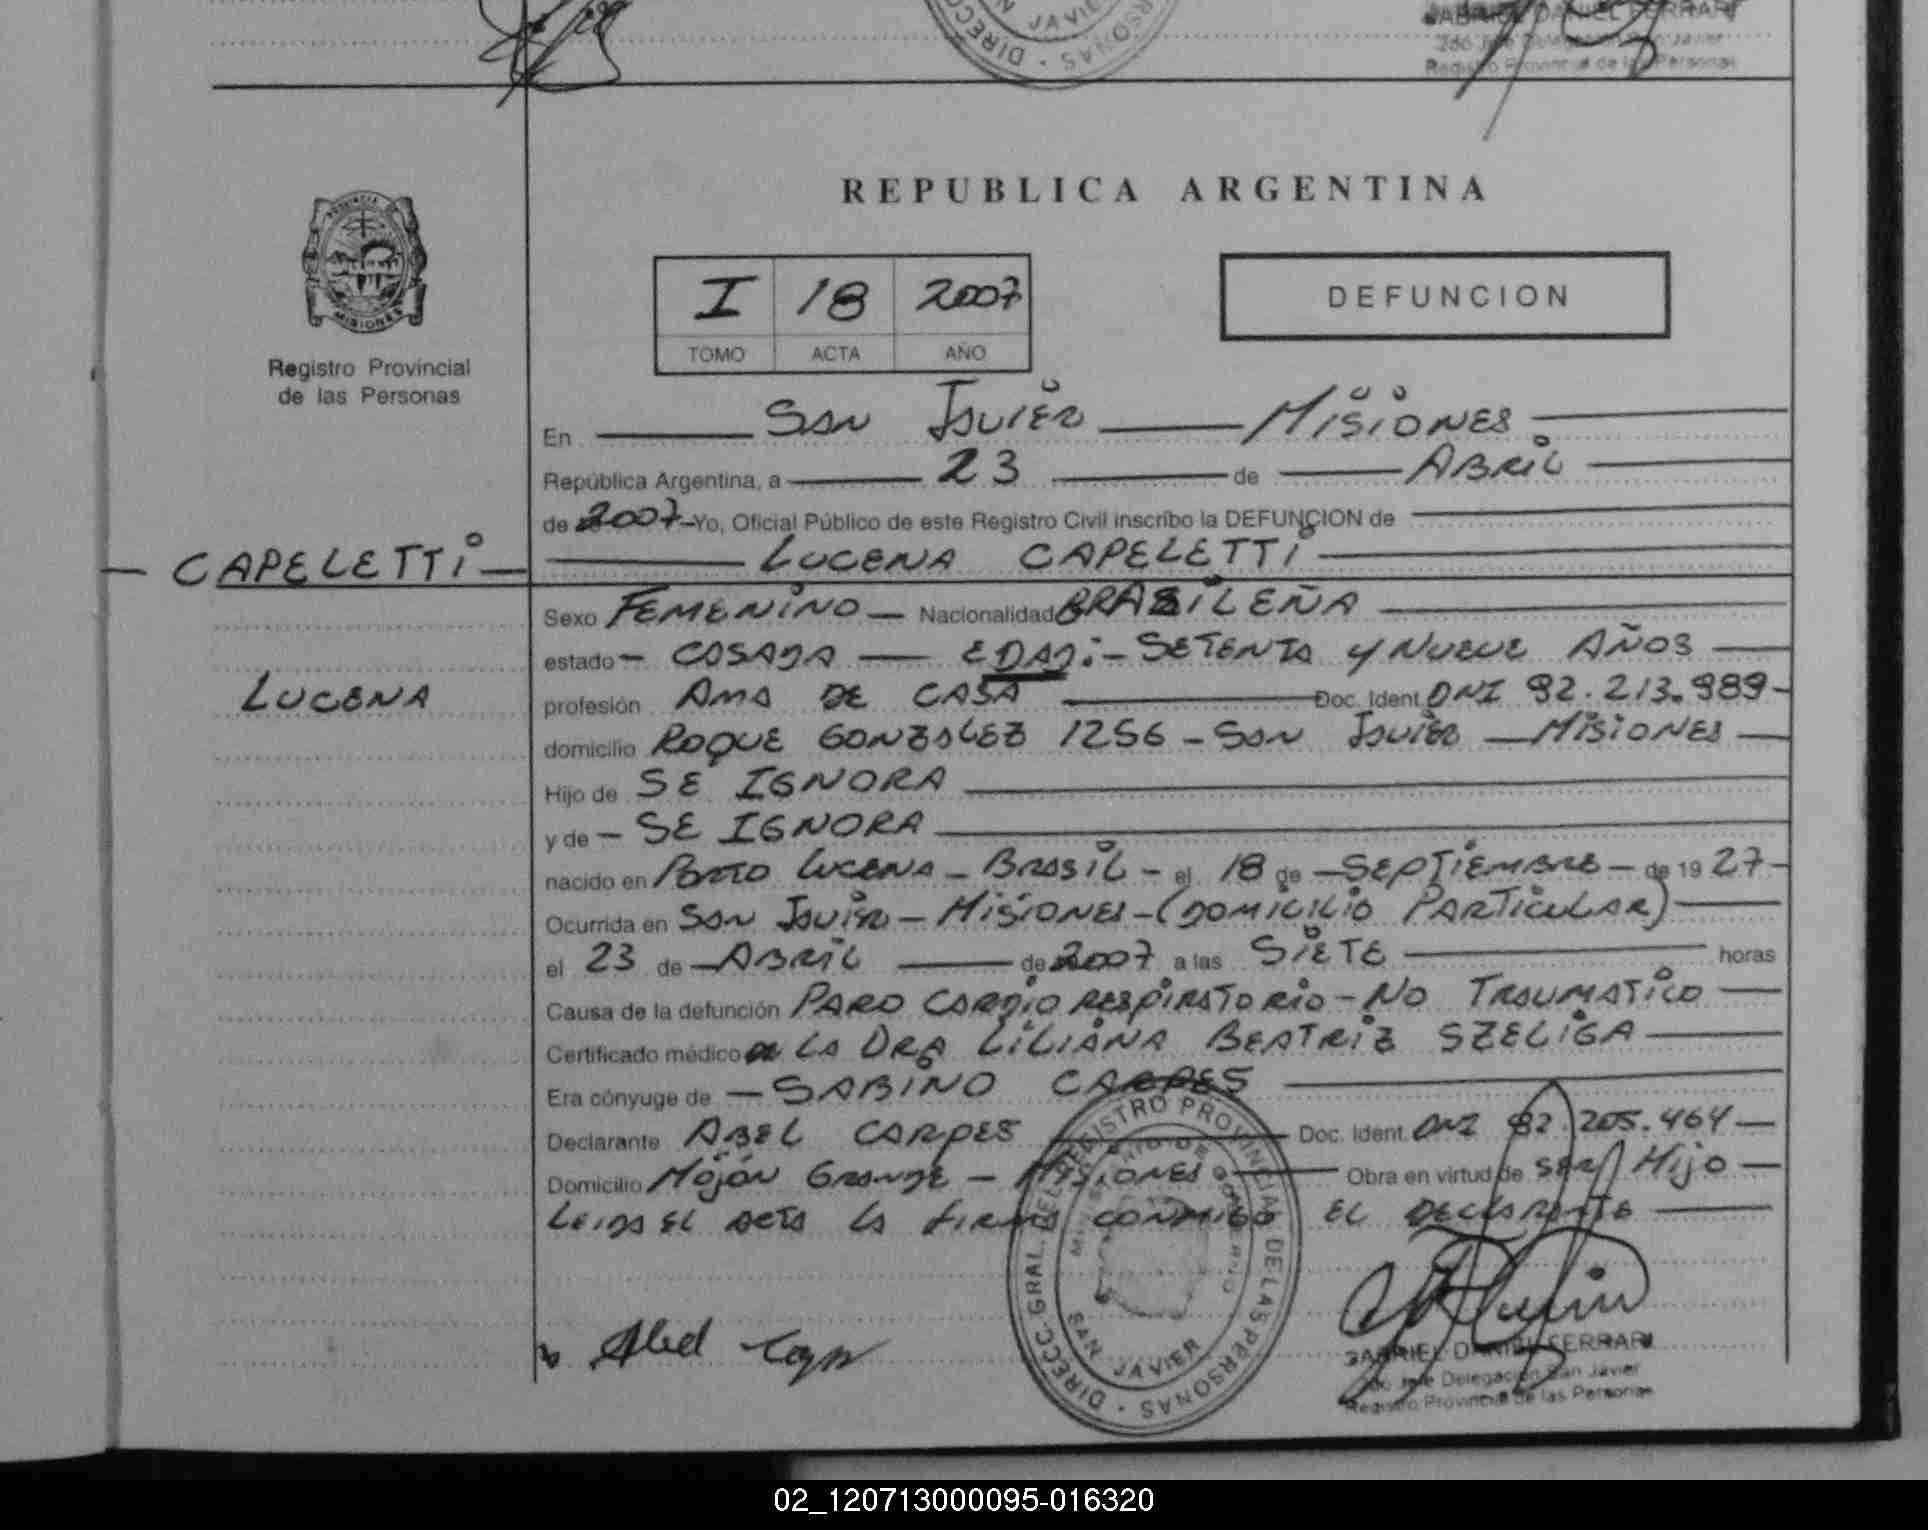 DIREC
N JAVIE
PERSONAS
GABRIEL DANIEL FERRARI
2do Jefe Delegación San Javier
Registro Provincial de las Personas
REPUBLICA ARGENTINA
PROVINCIA DE
MISIONES
I 18 2007
TOMO ACTA AÑO
DEFUNCION
Registro Provincial
de las Personas
En San Javier Misiones
República Argentina, a 23 de ABRIL
de 2007 Yo, Oficial Público de este Registro Civil inscribo la DEFUNCION de
CAPELETTI
LUCENA CAPELETTI
LUCENA
Sexo FEMENINO Nacionalidad BRASILEÑA
estado - CASADA EDAD:- SETENTA Y NUEVE AÑOS
profesión AMA DE CASA Doc. Ident. DNI 92.213.989-
domicilio ROQUE GONZALEZ 1256 - SAN JAVIER - MISIONES
Hijo de SE IGNORA
y de - SE IGNORA
nacido en PORTO LUCENA - BRASIL - el 18 de - SEPTIEMBRE - de 19 27-
Ocurrida en SAN JAVIER - MISIONES - (DOMICILIO PARTICULAR)
el 23 de ABRIL de 2007 a las SIETE horas
Causa de la defunción PARO CARDIO RESPIRATORIO - NO TRAUMATICO
Certificado médico de LA DRA LILIANA BEATRIZ SZELIGA
Era cónyuge de - SABINO CARPES
Declarante ABEL CARPES Doc. Ident. DNI 92.205.464
Domicilio MOJÓN GRANDE - MISIONES Obra en virtud de SER HIJO
LEIDA EL ACTA LA FIRMA CONMIGO EL DECLARANTE
DIRECC. GRAL. DEL REGISTRO PROVINCIAL DE LAS PERSONAS
MINISTERIO DE GOBIERNO
SAN JAVIER
Abel
GABRIEL DANIEL FERRARI
2do Jefe Delegación San Javier
Registro Provincial de las Personas
02_120713000095-016320